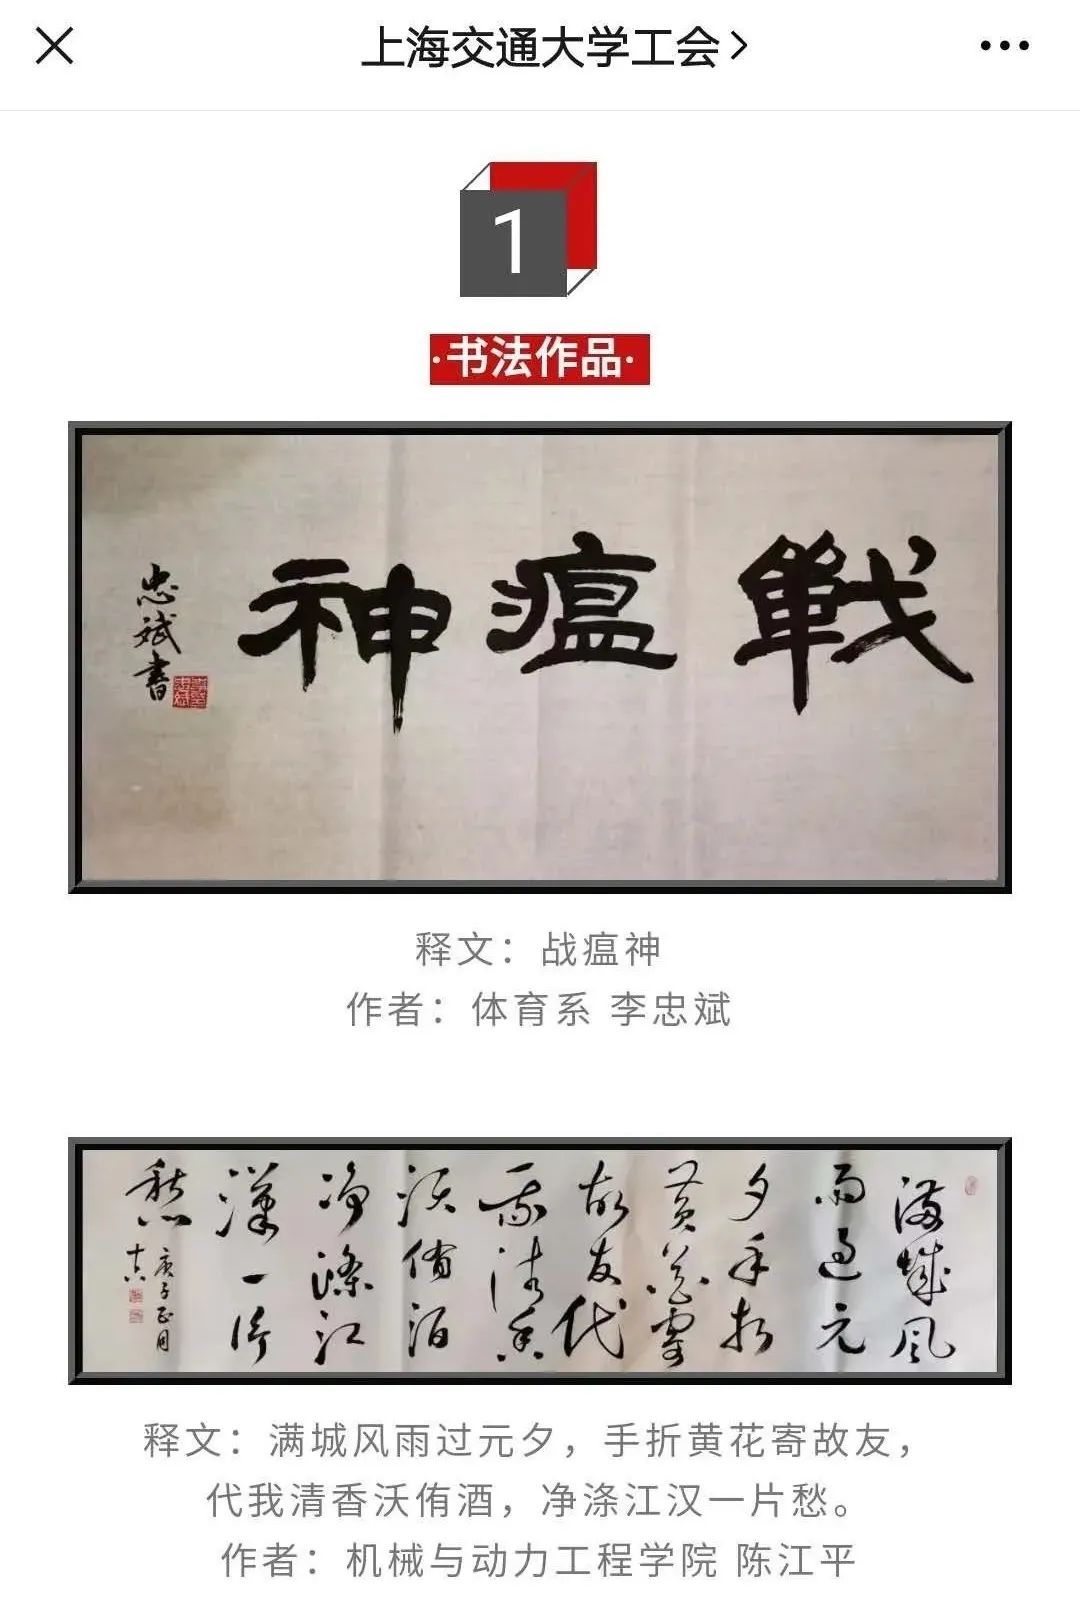 上海交通大学工会
1
·书法作品·
戰瘟神
忠斌書
释文：战瘟神
作者：体育系 李忠斌
满城风
雨过元
夕手折
黄花寄
故友代
我清香
沃侑酒
净涤江
漢一片
愁
庚子正月
释文：满城风雨过元夕，手折黄花寄故友，
代我清香沃侑酒，净涤江汉一片愁。
作者：机械与动力工程学院 陈江平